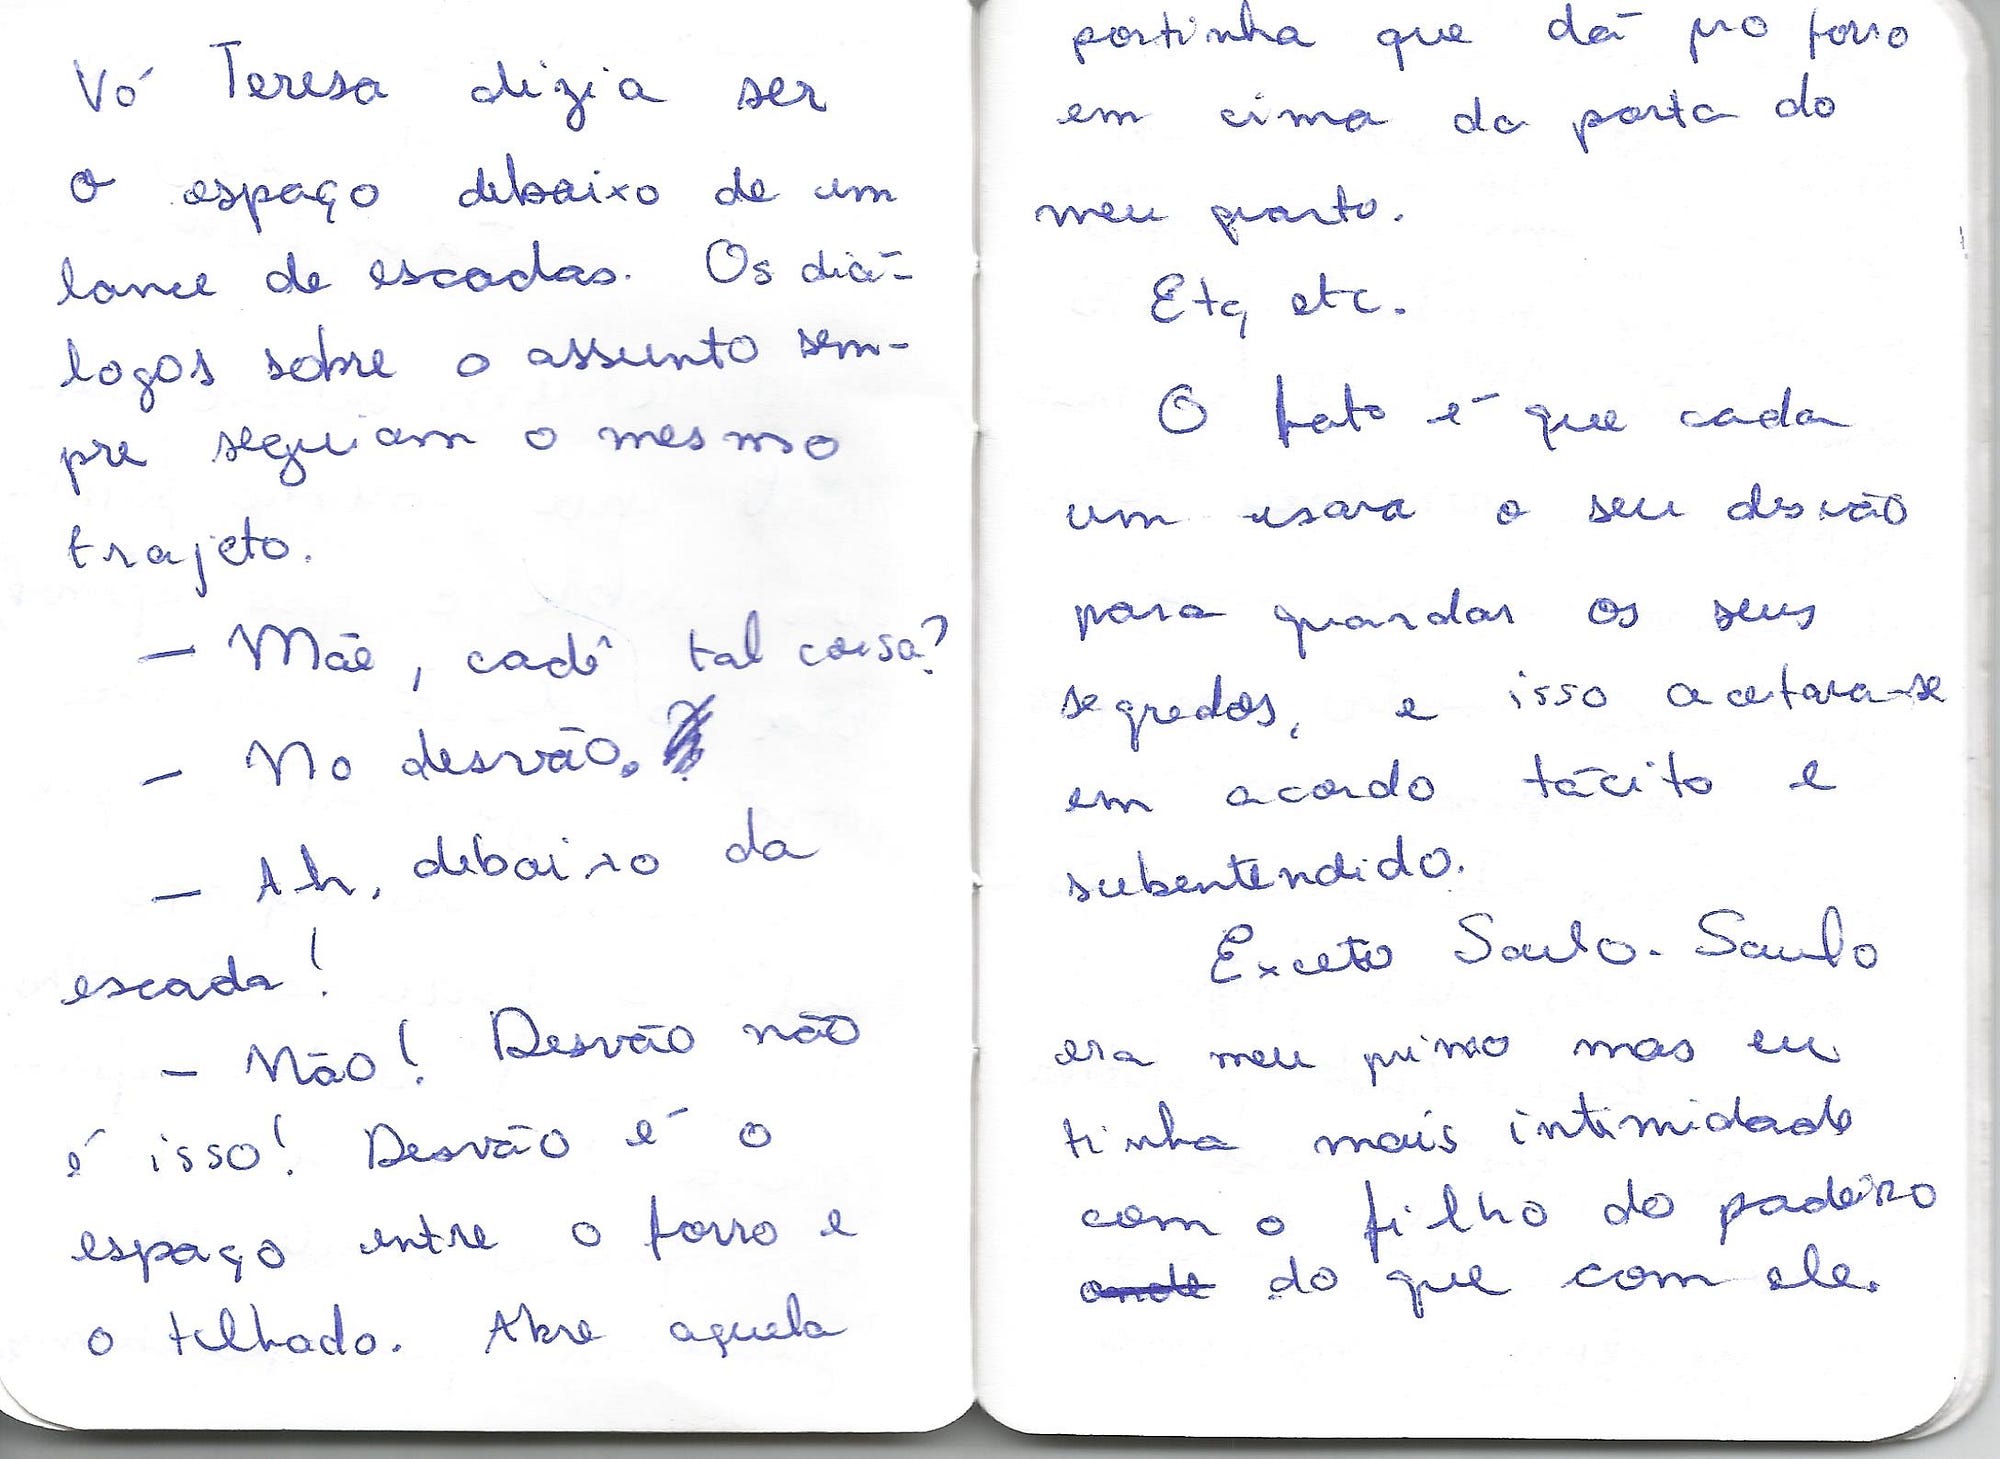 Vó Teresa dizia ser
o espaço debaixo de um
lance de escadas. Os diá-
logos sobre o assunto sem-
pre seguiam o mesmo
trajeto.
— Mãe, cadê tal coisa?
— No desvão.
— Ah, debaixo da
escada!
— Não! Desvão não
é isso! Desvão é o
espaço entre o forro e
o telhado. Abre aquela
portinha que dá pro forro
em cima da porta do
meu quarto.
Etc, etc.
O fato é que cada
um usava o seu desvão
para guardar os seus
segredos, e isso acatava-se
em acordo tácito e
subentendido.
Exceto Saulo. Saulo
era meu primo mas eu
tinha mais intimidade
com o filho do padeiro
do que com ele.